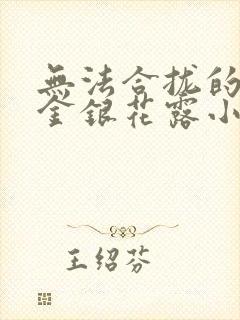 無法合拢的
金銀花露小
王绍芬